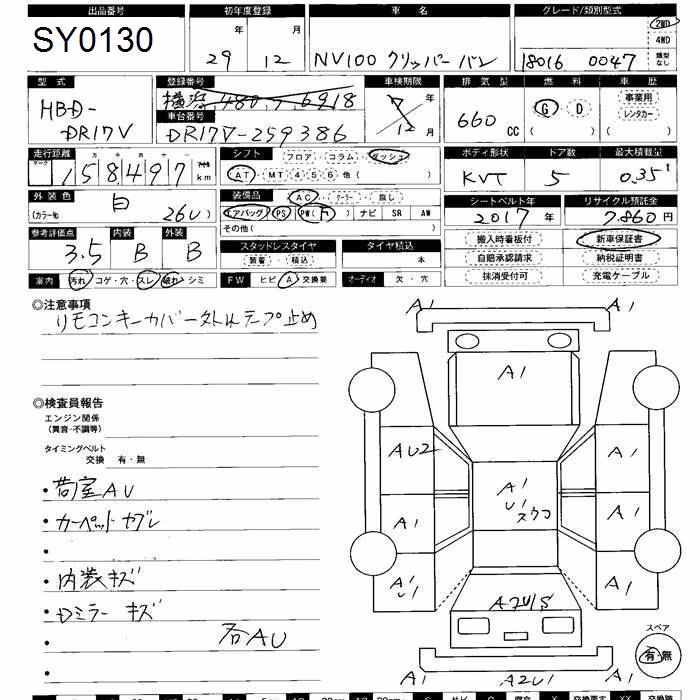 出品番号 初年度登録 車名 グレード/類別型式
SY0130 29年 12月 NV100 クリッパー バン 18016 0047 類型なし 2WD 4WD
型式 登録番号 車検期限 排気量 燃料 車歴
HBD-DR17V 横浜 480 ケ 6918 7年 12月 660cc G・D ( ) 事業用 レンタカー ( )
車台番号
DR17V-259386
走行距離 シフト フロア・コラム・ダッシュ ボディ形状 ドア数 最大積載量
158497 km AT・MT 4 5 6 他( ) KVT 5 0.35t
外装色 装備品 AC・クーラー・無し シートベルト年 リサイクル預託金
白 (カラーNo 26U) エアバッグ PS PW(F) ナビ SR AW 2017年 7,860円
その他( )
参考評価点 内装 外装 スタッドレスタイヤ タイヤ積込 搬入時看板付 新車保証書
3.5 B B 装着・積込 本 自賠承認請求 納税証明書
車内 汚れ コゲ・穴・スレ・破れ・シミ FW ヒビ・A・交換要 オーディオ 欠・穴 抹消受付可 充電ケーブル
◎注意事項
リモコンキーカバー外れテープ止め
◎検査員報告
エンジン関係
(異音・不調等)
タイミングベルト
交換 有・無
・荷室AU
・カーペットヤブレ
・
・内装キズ
・Dミラー キズ
・ 右AU
・
A1 A1
A1
AU2 A1
A1 A1 U1 スウコ A1
A1 U1 A1
A2U1S
A1 A2U1 A1
スペア
有・無